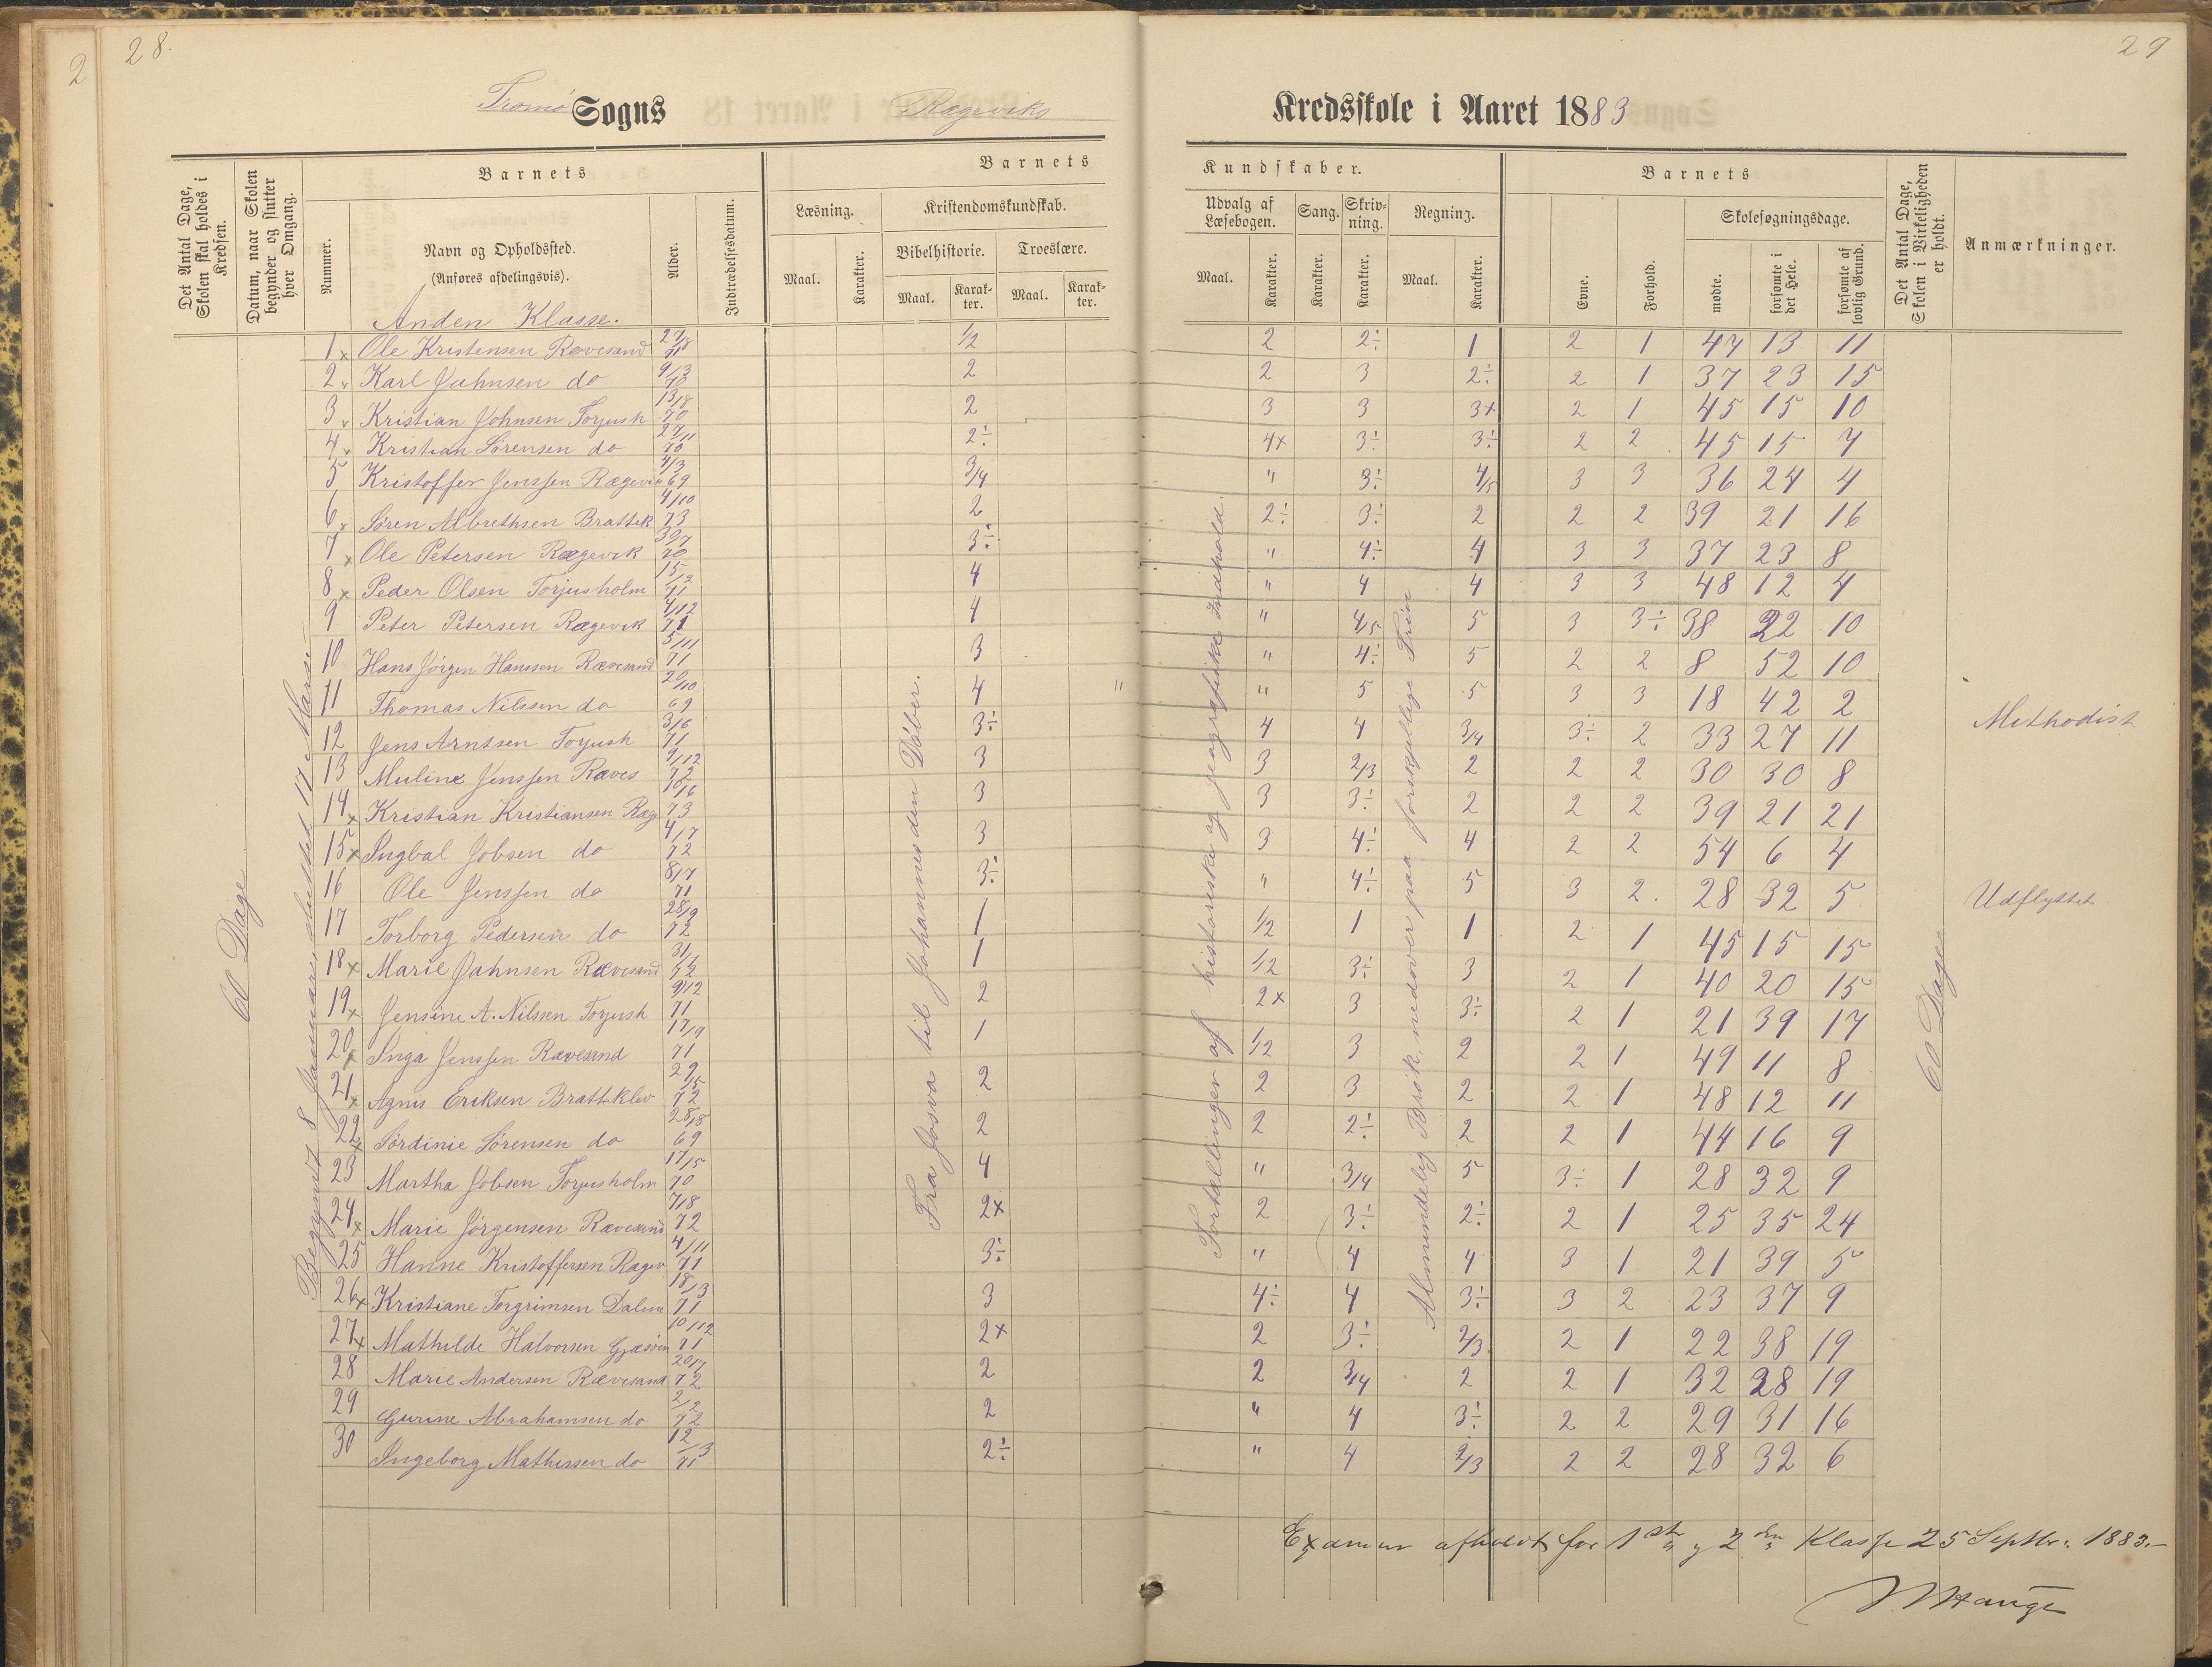 2 28. 29
Tromø Sogns Rægeviks Kredsskole i Aaret 1883
Det Antal Dage, Skolen skal holdes i Kredsen.
Datum, naar Skolen begynder og slutter hver Omgang.
Barnets
Nummer.
Navn og Opholdssted. (Anføres afdelingsvis).
Alder.
Indtrædelsesdatum.
Barnets Kundskaber.
Læsning. Maal. Karakter.
Kristendomskundskab.
Bibelhistorie. Maal. Karakter.
Troeslære. Maal. Karakter.
Udvalg af Læsebogen. Maal. Karakter.
Sang. Karakter.
Skrivning. Karakter.
Regning. Maal. Karakter.
Barnets
Evne.
Forhold.
Skolesøgningsdage.
mødte. forsømte i det Hele. forsømte af lovlig Grund.
Det Antal Dage, Skolen i Virkeligheden er holdt.
Anmærkninger.
Anden Klasse.
60 Dage
Begyndt 8 Januar, sluttet 17 Marts
Fra Josva til Johannes den Døber.
Fortællinger af historiske og geografiske Indhold.
Almindelig Brøk, nedover paa forskjellige Trin
60 Dage
1 x Ole Kristensen Rævesand 27/8 71 1/2 2 2÷ 1 2 1 47 13 11
2 x Karl Jahnsen do 9/3 70 2 2 3 2÷ 2 1 37 23 15
3 x Kristian Johnsen Torjush 13/8 70 2 3 3 3x 2 1 45 15 10
4 x Kristian Sørensen do 27/11 70 2÷ 4x 3÷ 3÷ 2 2 45 15 7
5 Kristoffer Jenssen Rægevik 4/3 69 3/4 " 3÷ 4/5 3 3 36 24 4
6 x Søren Albrethsen Brattek 4/10 73 2 2÷ 3÷ 2 2 2 39 21 16
7 x Ole Petersen Rægevik 30/7 70 3÷ " 4÷ 4 3 3 37 23 8
8 x Peder Olsen Torjusholm 15/12 71 4 " 4 4 3 3 48 12 4
9 Peter Petersen Rægevik 4/12 71 4 " 4/5 5 3 3÷ 38 22 10
10 Hans Jörgen Hanssen Rævesand 5/11 71 3 " 4÷ 5 2 2 8 52 10
11 Thomas Nilssen do 20/10 69 4 " " 5 5 3 3 18 42 2 Methodist
12 Jens Arntsen Torjush 3/6 71 3÷ 4 4 3/4 3÷ 2 33 27 11
13 Muline JenssenRæves 9/12 72 3 3 2/3 2 2 2 30 30 8
14 x Kristian Kristiansen Ræg 10/6 73 3 3 3÷ 2 2 2 39 21 21
15 x Ingbal Jobsen do 4/7 72 3 3 4÷ 4 2 2 54 6 4
16 Ole Jenssen do 8/7 71 3÷ " 4÷ 5 3 2. 28 32 5 Udflyttet.
17 Torborg Pedersen do 28/9 72 1 1/2 1 1 2 1 45 15 15
18 x Marie Jahnsen Rævesand 72 1 1/2 3÷ 3 2 1 40 20 15
19 x Jensine A. Nilssen Torjush 9/12 71 2 2x 3 3÷ 2 1 21 39 17
20 x Inga Jenssen Rævesand 17/9 71 1 1/2 3 2 2 1 49 11 8
21 x Agnis Eriksen Bratteklev 29/5 72 2 2 3 2 2 1 48 12 11
22 x Sørdinie Sørensen do 28/8 69 2 2 2÷ 2 2 1 44 16 9
23 Martha Jobsen Torjusholm 17/5 70 4 " 3/4 5 3÷ 1 28 32 9
24 x Marie Jørgensen Rævesand 7/8 72 2x 2 3÷ 2÷ 2 1 25 35 24
25 Hanne Kristoffersen Rægev 4/11 71 3÷ " 4 4 3 1 21 39 5
26 x Kristiane Torgrimsen Dalene 18/3 71 3 4÷ 4 3÷ 3 2 23 37 9
27 x Mathilde Halvorsen 10/12 71 2x 2 3÷ 2/3 2 1 22 38 19
28 Marie Andersen Rævesand 20/7 72 2 2 3/4 2 2 1 32 28 19
29 Gurine Abrahamsen do 2/12 72 2 " 4 3÷ 2 2 29 31 16
30 Ingeborg Mathissen do 12/3 71 2÷ " 4 2/3 2 2 28 32 6
Examen afholdt for 1ste og 2den Klasse 25 Septbr. 1883.—
Hauge